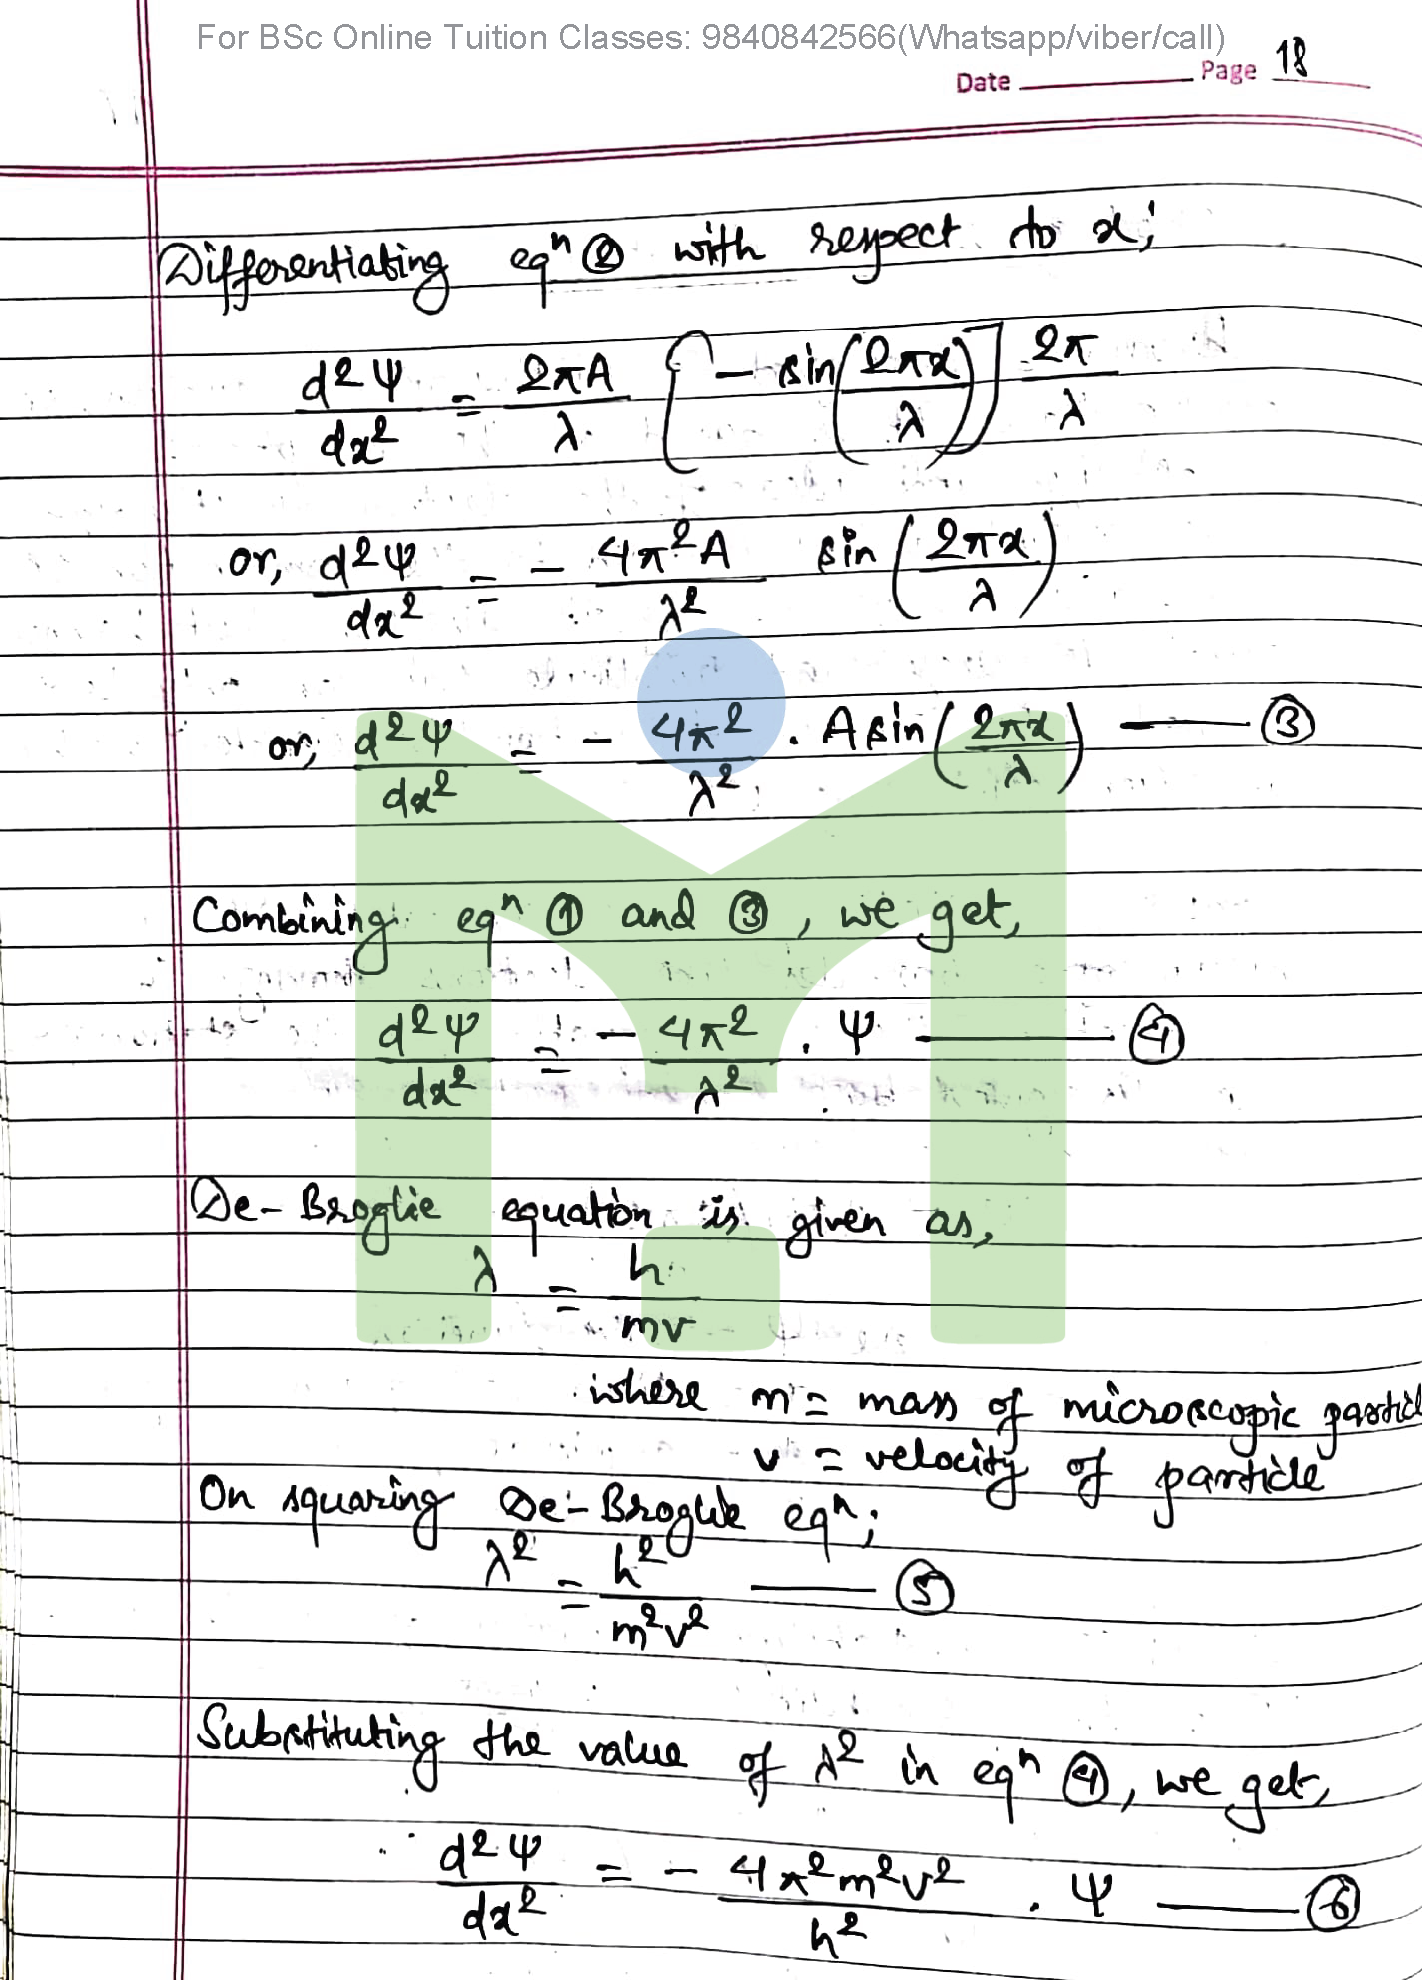 For BSc Online Tuition Classes: 9840842566(Whatsapp/viber/call)
Date Page 18
Differentiating eqⁿ ② with respect to x;
d²ψ/dx² = 2πA/λ [− sin(2πx/λ)] 2π/λ
or, d²ψ/dx² = − 4π²A/λ² sin(2πx/λ)
or, d²ψ/dx² = − 4π²/λ² . A sin(2πx/λ) —— ③
Combining eqⁿ ① and ③, we get,
d²ψ/dx² = − 4π²/λ² . ψ —— ④
De-Broglie equation is given as,
λ = h/mv
where m = mass of microscopic particl
v = velocity of particle
On squaring De-Broglie eqⁿ;
λ² = h²/m²v² —— ⑤
Substituting the value of λ² in eqⁿ ④, we get,
d²ψ/dx² = − 4π²m²v²/h² . ψ —— ⑥